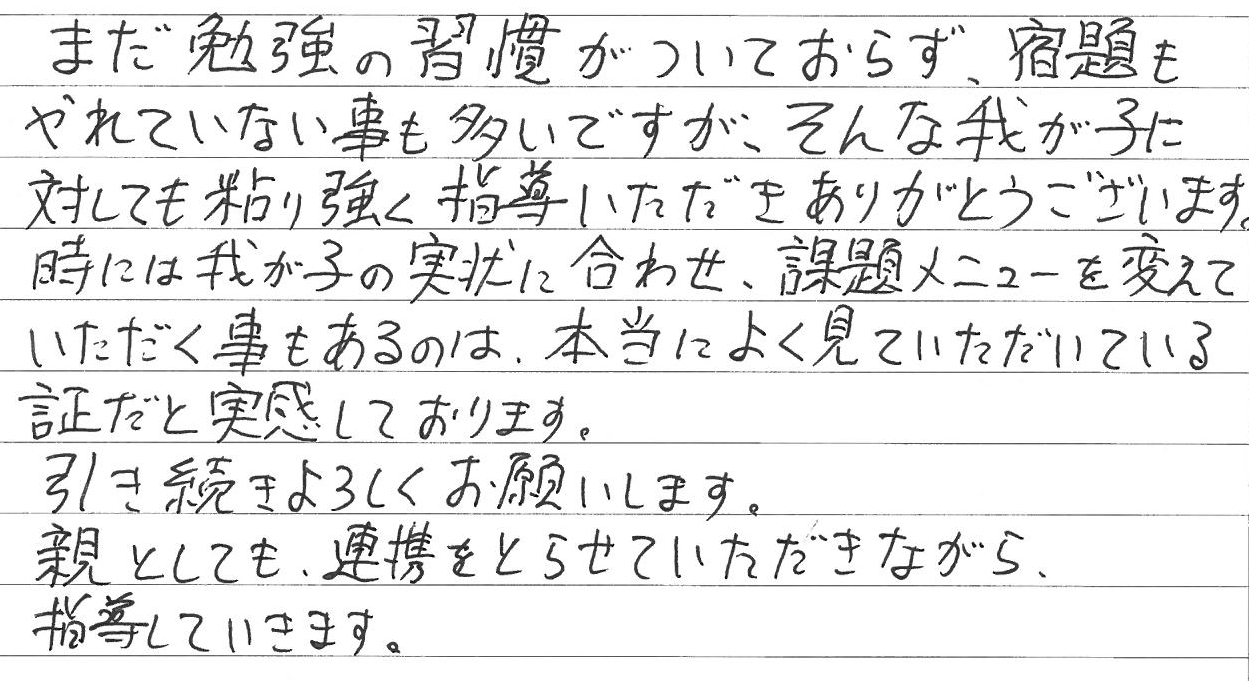 まだ勉強の習慣がついておらず、宿題も
やれていない事も多いですが、そんな我が子に
対しても粘り強く指導いただきありがとうございます。
時には我が子の実状に合わせ、課題メニューを変えて
いただく事もあるのは、本当によく見ていただいている
証だと実感しております。
引き続きよろしくお願いします。
親としても、連携をとらせていただきながら、
指導していきます。